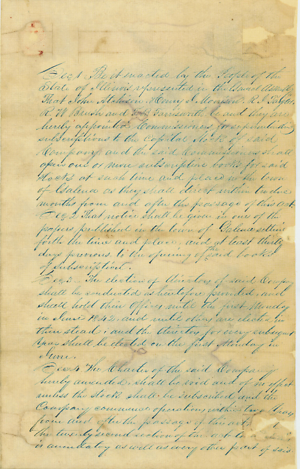 Sec 1 Be it enacted by the People of the
State of Illinois represented in the General Assembly
That John Atchison Henry
and they are
hereby appointed Commissioners for
subscriptions to the Capital Stock of said
Company and the said Commissioners shall
open one or more subscription books for said
Stock at such time and place in the town
of Galena as they shall within twelve
months from and after the passage of this act
Sec 2 That notice shall be given in one of the
papers published in the town of Galena setting
forth the time and place and at least thirty
days previous to the opening of said books
of subscription.
Sec 3 The election of directors of said Company
shall be conducted as
shall hold their Office until the first Monday
in June 1842 and until others are chosen in
their stead and the directors for every subsequent
year shall be elected on the first Monday in
June
Sec 4 The Charter of the said Company
hereby amended shall be void and of no effect
unless the Stock shall be Subscribed and the
Company commence operations within
from and after the passage of this act
the twenty second section of the act to
is amendatory as well as every other part of said